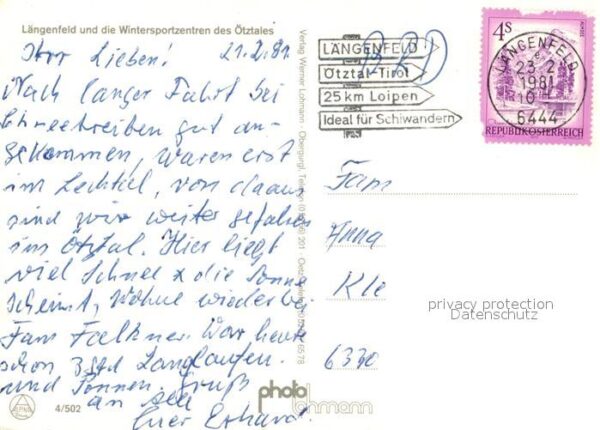 Längenfeld und die Wintersportzentren des Ötztales
Ihr Lieben! 21.2.81
Nach langer Fahrt bei
Schneetreiben gut an-
gekommen, waren erst
im Lechtal, von da aus
sind wir weiter gefahren
ins Ötztal. Hier liegt
viel Schnee & die Sonne
scheint, Wohne wieder bei
Fam Falkner. War heute
schon 3 Std Langlaufen.
und Sonnen. Gruß
an alle
Euer Erhard.
4/502
Verlag Werner Lohmann · Obergurgl, Telefon
201 · Oetz
6578
photo
lohmann
BRD
LÄNGENFELD
Ötztal-Tirol
25 km Loipen
Ideal für Schiwandern
4S
REPUBLIK ÖSTERREICH
LÄNGENFELD
23.2.
1981
10
6444
Fam
Anna
Kle
6330
privacy protection
Datenschutz